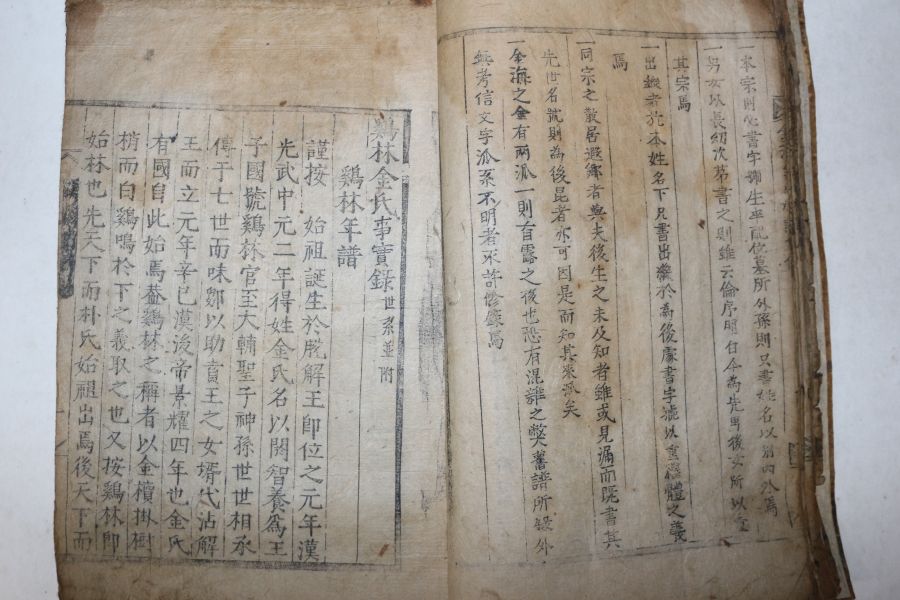 一本宗則必書字諱生卒配位墓所外孫則只書姓名以別內外焉
一男女以長幼次第書之則雖云倫序明白今為先男後女所以重
其宗焉
一出繼者於本姓名下只書出繼於為後處書字號以重繼體之義
焉
一同宗之散居遐鄉者與夫後生之未及知者雖或見漏而既書其
先世名號則為後昆者亦可因是而知其來派矣
一金海之金有兩派一則首露之後也恐有混雜之弊舊譜所錄外
無考信文字派系不明者不許修錄焉
鷄林金氏事實錄 世系並附
鷄林年譜
謹按 始祖誕生於脫解王即位之元年漢
光武中元二年得姓金氏名以閼智養爲王
子國號鷄林官至大輔聖子神孫世世相承
傳于七世而味鄒以助賁王之女壻代沾解
王而立元年辛巳漢後帝景耀四年也金氏
有國自此始焉蓋鷄林之稱者以金櫝掛樹
梢而白鷄鳴於下之義取之也又按鷄林即
始林也先天下而朴氏始褪出焉後天下而